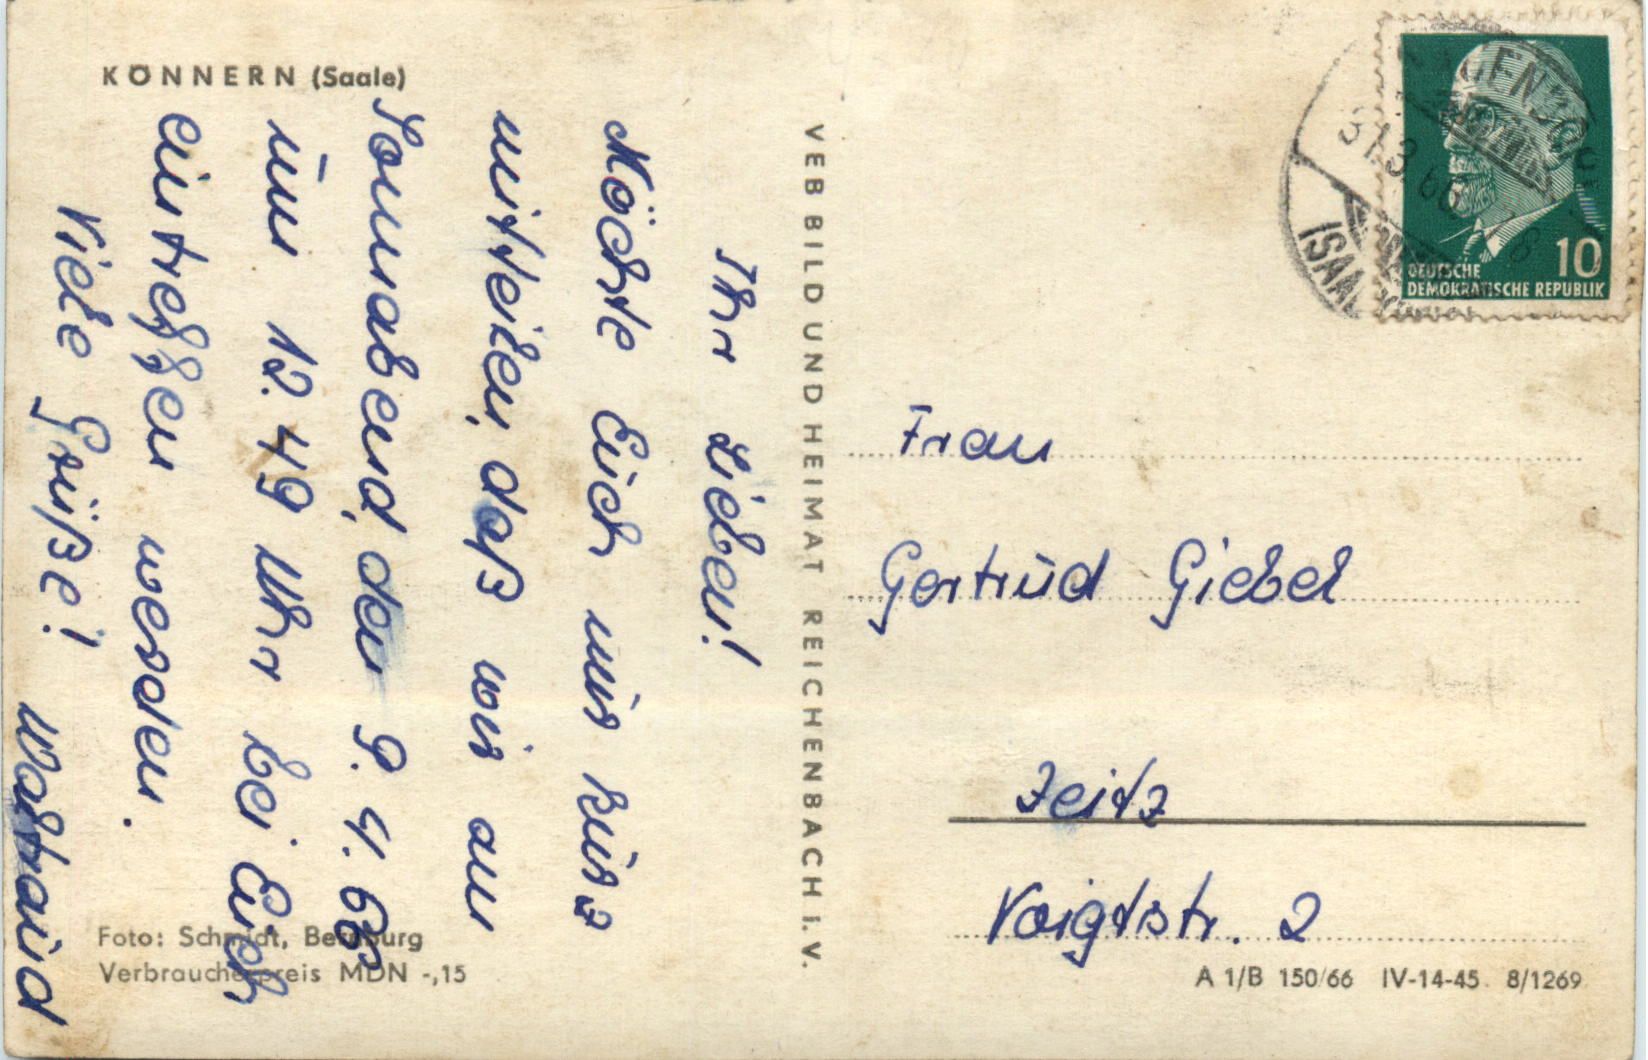 KÖNNERN (Saale)
Ihr Lieben!
Möchte Euch nur kurz
mitteilen, daß wir am
Sonnabend, den 9. 4. 66
um 12.49 Uhr bei Euch
eintreffen werden.
Viele Grüße! Waltraud
Foto: Schmidt, Bernburg
Verbraucherpreis MDN -,15
VEB BILD UND HEIMAT REICHENBACH I. V.
31.3.66
(SAALE)
10
DEUTSCHE
DEMOKRATISCHE REPUBLIK
Frau
Gertrud Giebel
Zeitz
Voigtstr. 2
A 1/B 150/66 IV-14-45 8/1269